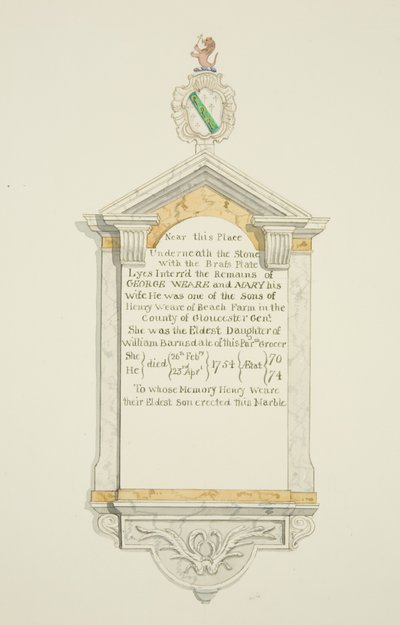 Near this Place
Underneath the Stone
with the Braſs Plate
Lyes Interr'd the Remains of
GEORGE WEARE and MARY his
Wife He was one of the Sons of
Henry Weare of Beach Farm in the
County of Gloucester Genᵗ
She was the Eldest Daughter of
William Barnsdale of this Parᵐ Grocer
She He } died { 26ᵗʰ Febʳʸ 23ʳᵈ Aprˡ } 1754 { Ætat { 70 74
To whose Memory Henry Weare
their Eldest Son erected this Marble